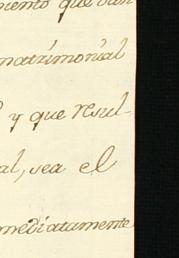 mento que dan
matrimonial
y que resul-
al, sea el
mediatamente